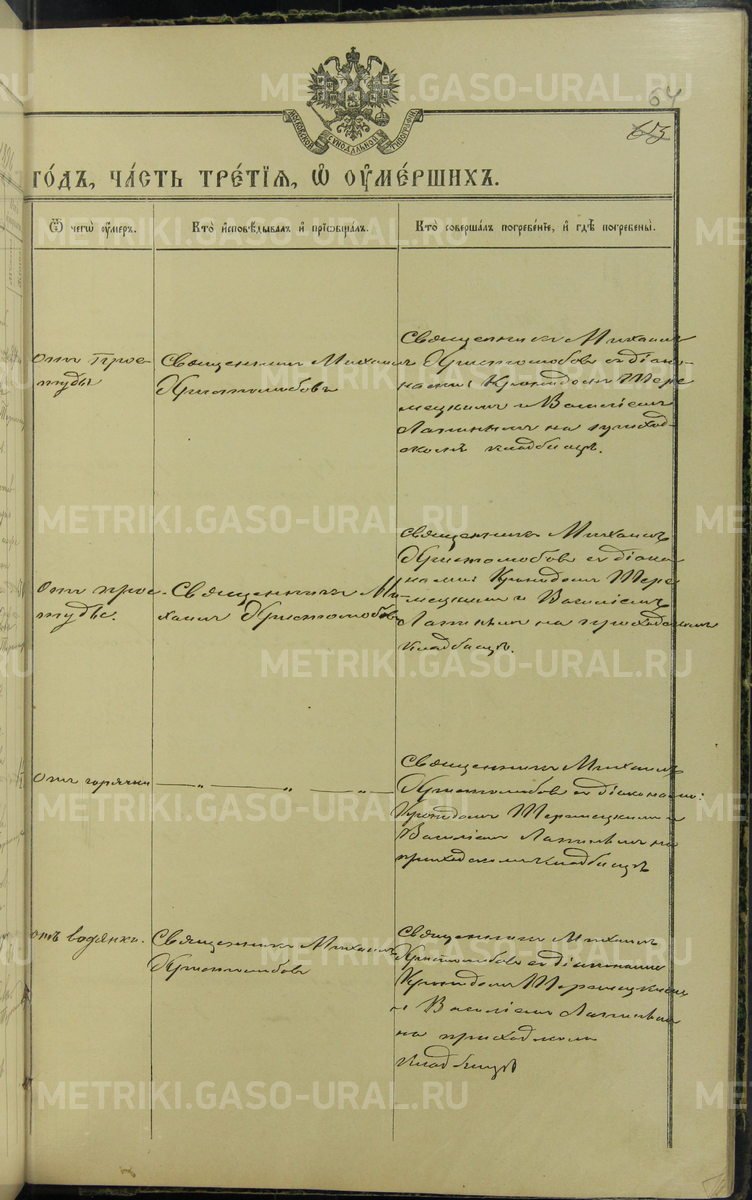 METRIKI.GASO-URAL.RU
64
МОСКОВСКОЙ СѴНОДАЛЬНОЙ ТИПОГРАФІИ
го́дъ, ча́сть тре́тїѧ, ѡ҆ ᲂу҆ме́ршихъ.
Ѿ чегѡ̀ ᲂу҆́меръ.
Кто̀ и҆сповѣ́дывалъ и҆ прїѡбща́лъ.
Кто̀ соверша́лъ погребе́нїе, и҆ гдѣ̀ погребены̀.
отъ прос-
туды
Священникъ Михаилъ
Христолюбовъ
Священникъ Михаилъ
Христолюбовъ съ діако-
нами: Кронидомъ Шере-
мецкимъ и Василіемъ
Лапинымъ на приход-
скомъ кладбищѣ.
отъ прос-
туды.
Священникъ Ми-
хаилъ Христолюбовъ
Священникъ Михаилъ
Христолюбовъ съ діако-
нами: Кронидомъ Шере-
мецкимъ и Василіемъ
Лапинымъ на приходскомъ
кладбищѣ.
отъ горячки
— „ — „ — „ —
Священникъ Михаилъ
Христолюбовъ съ діаконами:
Кронидомъ Шеремецкимъ и
Василіемъ Лапинымъ на
приходскомъ кладбищѣ
отъ водянки.
Священникъ Михаилъ
Христолюбовъ
Священникъ Михаилъ
Христолюбовъ съ діаконами
Кронидомъ Шеремецкимъ
и Василіемъ Лапинымъ
на приходскомъ
кладбищѣ